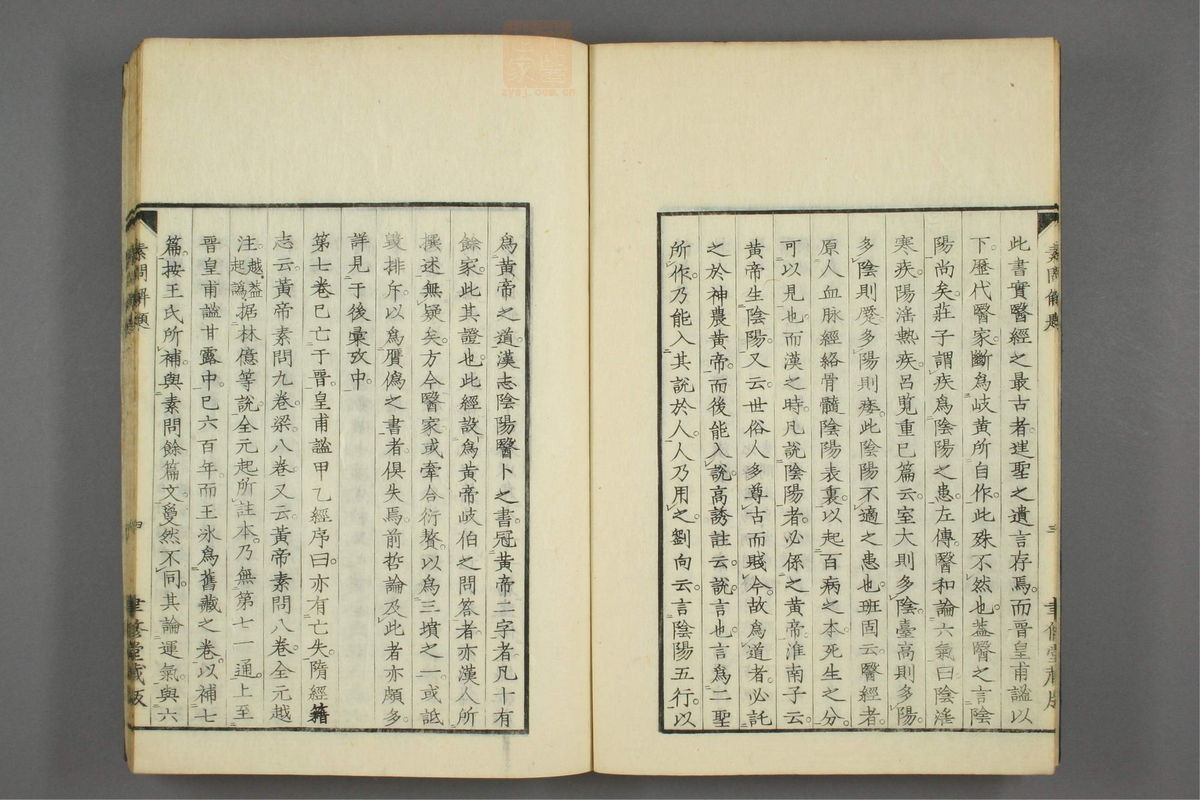 素問解題
三
聿修堂藏版
此書實醫經之最古者迬聖之遺言存焉而晉皇甫謐以
下歷代醫家斷為岐黃所自作此殊不然也葢醫之言陰
陽尚矣莊子謂疾為陰陽之患左傳醫和論六氣曰陰淫
寒疾陽淫熱疾呂覧重已篇云室大則多陰臺高則多陽
多陰則蹷多陽則痿此陰陽不適之患也班固云醫經者
原人血脉經絡骨髓陰陽表裏以起百病之本死生之分
可以見也而漢之時凡說陰陽者必係之黃帝淮南子云
黃帝生陰陽又云世俗人多尊古而賤今故為道者必託
之於神農黃帝而後能入說高誘註云說言也言為二聖
所作乃能入其說於人人乃用之劉向云言陰陽五行以
為黃帝之道漢志陰陽醫卜之書冠黃帝二字者凡十有
餘家此其證也此經設為黃帝岐伯之問荅者亦漢人所
撰述無疑矣方今醫家或牽合衍贅以為三墳之一或詆
毀排斥以為贋偽之書者俱失焉前哲論及此者亦頗多
詳見于後彙攷中
第七卷已亡于晉皇甫謐甲乙經序曰亦有亡失隋經籍
志云黃帝素問九卷梁八卷又云黃帝素問八卷全元越
注越葢起譌據林億等說全元起所註本乃無第七一通上至
晉皇甫謐甘露中已六百年而王氷為舊藏之卷以補七
篇按王氏所補與素問餘篇文敻然不同其論運氣與六
素問解題
四
聿修堂藏版